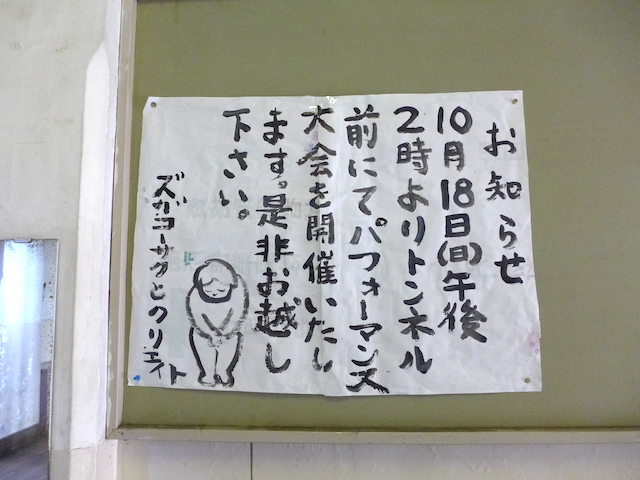 お知らせ
10月18日(日)午後
2時よりトンネル
前にてパフォーマンス
大会を開催いたし
ます。是非お越し
下さい。
ズガコーサクとクリエイト